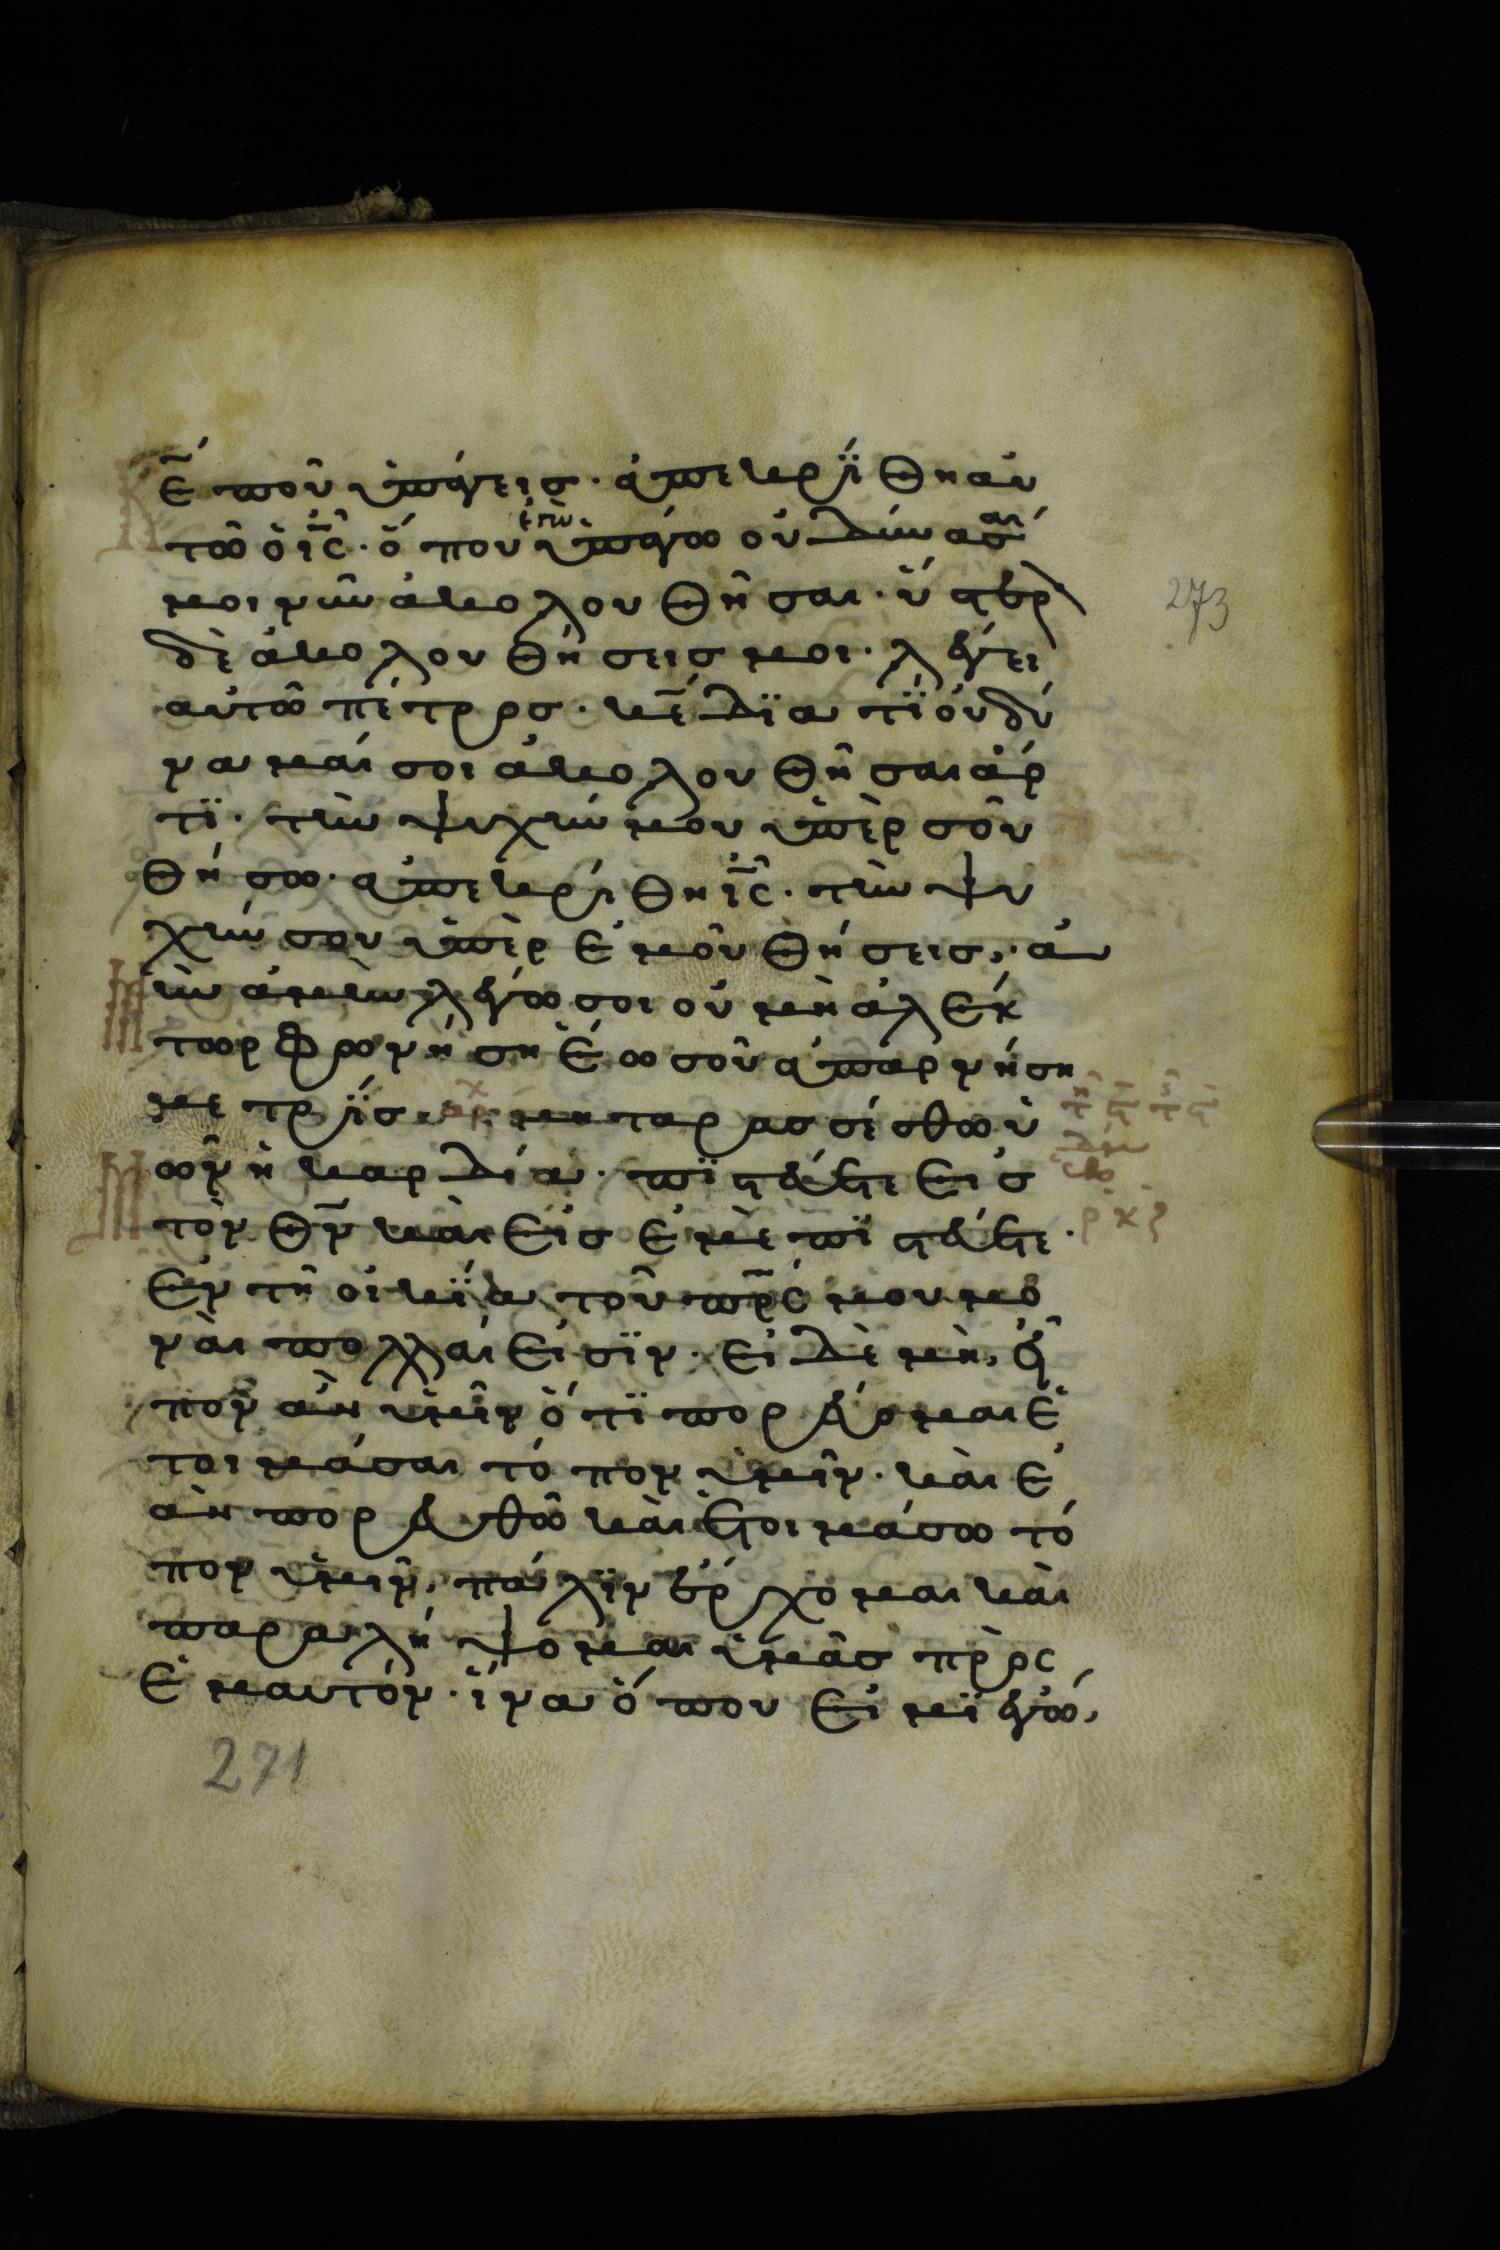 Κ
ε̄́ ποῦ ὑπάγεισ· ἀπεκρΐθη αὐ
τῶ ὁ ῑς̄· ὅπου ἐγὼ ὑπάγω οὐ δύνασαί
μοι νῦν ἀκολουθῆσαι· ὕστερ
273
δὲ ἀκολουθήσεισ μοι· λέγει
αὐτῶ πέτροσ· κ̄ε̄ δϊατΐ οὐ δύ
ναμαί σοι ἀκολουθῆσαι ἄρ
τϊ· τὴν ψυχήν μου ὑπὲρ σοῦ
θήσω· ἀπεκρίθη ῑς̄· τὴν ψυ
χήν σου ὑπὲρ ἐμοῦ θήσεισ· ἀ
μὴν ἀμὴν λέγω σοι οὐ μὴ ἀλέκ
τωρ φρονήση ἕωσ οὗ ἀπαρνήση
με τρΐσ· αρχ μη ταρασσέσθω ὑ
μῶν ἡ καρδία· πϊστεύετε εἰσ
τὸν θ̄ν̄ καὶ εἰσ ἐμὲ πϊστεύετε·
ἐν τῆ οἰκΐα τοῦ π̄ρ̄ς̄ μου μο
ναὶ πολλαί εἰσϊν· εἰ δὲ μὴ, εἶ
πον ἂν ὑμῖν ὅτϊ πορεύομαι ἑ
τοιμάσαι τόπον ὑμῖν· καὶ ἐ
ὰν πορευθῶ καὶ ἑτοιμάσω τό
πον ὑμῖν, πάλϊν ἔρχομαι καὶ
παραλήψομαι ὑμᾶσ πρὸς
ἐμαυτόν· ἵνα ὅπου εἰμϊ ἐγώ,
271